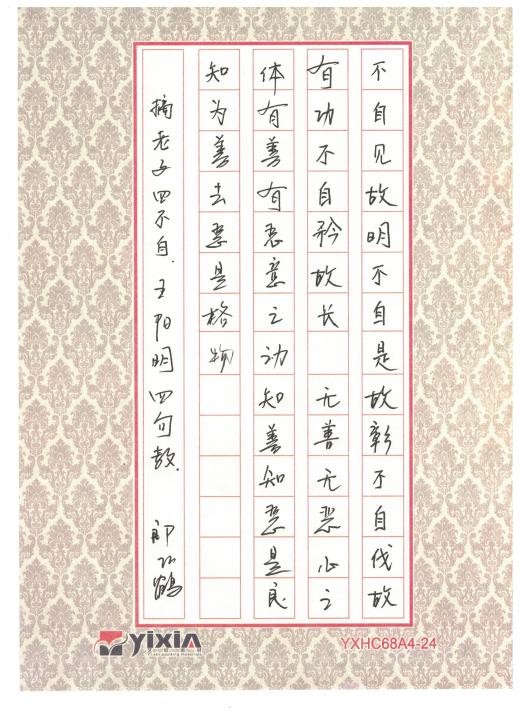 不自见故明不自是故彰不自伐故
有功不自矜故长 无善无恶心之
体有善有恶意之动知善知恶是良
知为善去恶是格物
摘老子四不自.王阳明四句教.
YIXIN
YXHC68A4-24